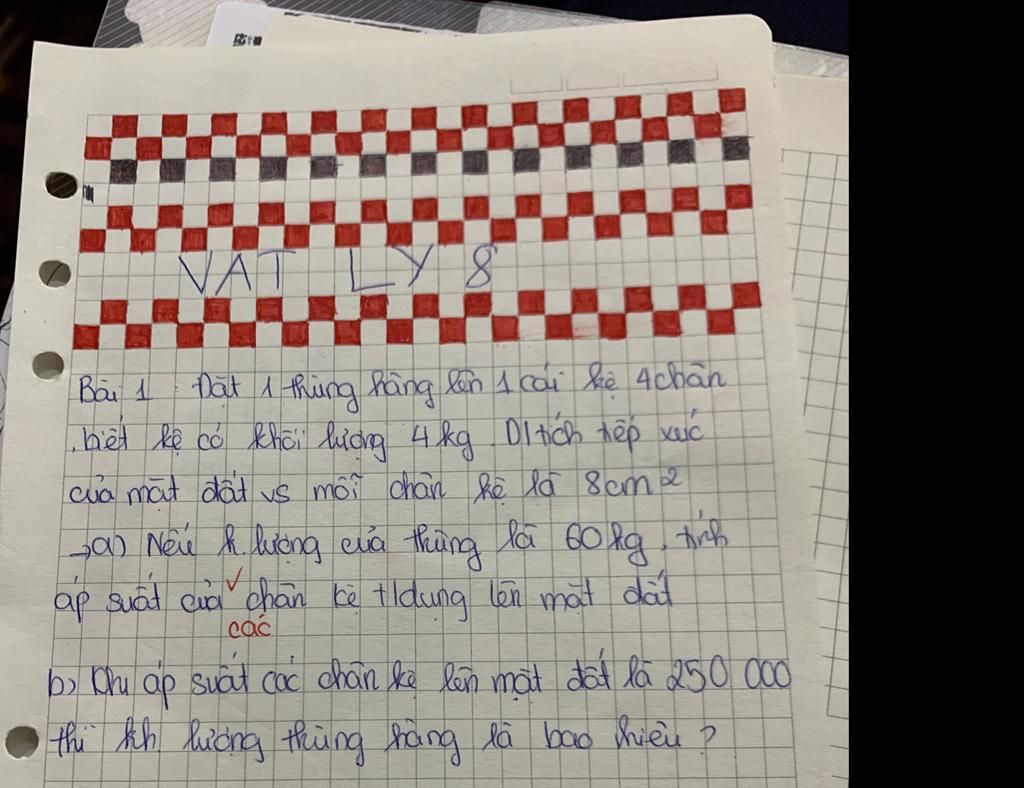 VAT LY 8
Bài 1 : Đặt 1 thùng hàng lên 1 cái kệ 4 chân
, biết kệ có khối lượng 4 kg. DI tích tiếp xúc
của mặt đất vs mỗi chân kệ là 8cm²
→a) Nếu k. lượng của thùng là 60kg, tính
áp suất của các chân kệ t/dụng lên mặt đất
b) Khi áp suất các chân kệ lên mặt đất là 250 000
thì kh lượng thùng hàng là bao nhiêu ?